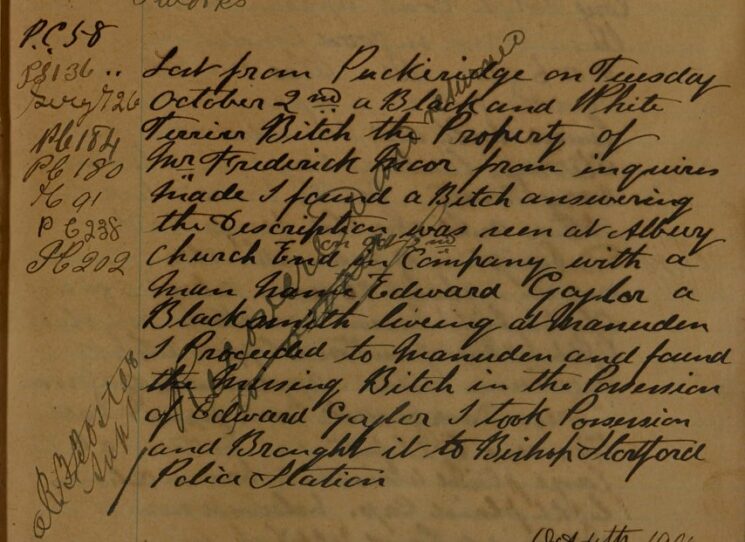 works
P.C. 58
PS 136 ..
Sergt 26
PC 184
PC 180
91
P C 238
PC 202
Lost from Puckeridge on Tuesday
October 2nd a Black and White
Terrier Bitch the Property of
Mr Frederick from inquires
made I found a Bitch answering
the Description was seen at Albury
on 2nd
Church End in Company with a
Man Name Edward Gaylor a
Blacksmith liveing at Manuden
I Proceeded to Manuden and found
the Missing Bitch in the Possession
of Edward Gaylor I took Possession
and Brought it to Bishop Stortford
Police Station
Recovered and returned
to
Foster
Supt
Oct 4th